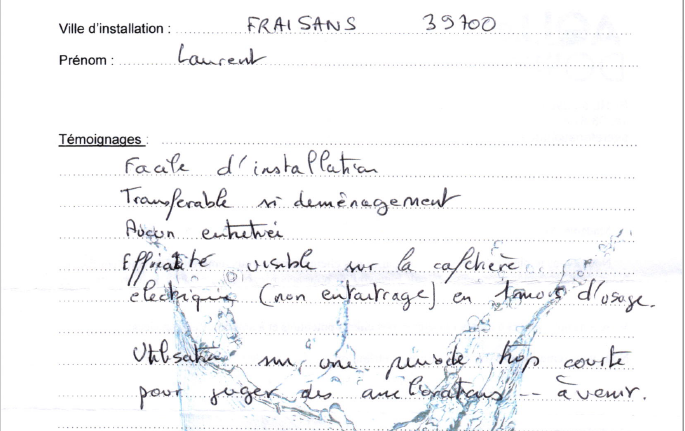 Ville d'installation : FRAISANS 39700
Prénom : Laurent
Témoignages :
Facile d'installation
Transferable si demènagement
Aucun entretien
Efficatité visible sur la cafetière
électrique (non entartrage) en 1 mois d'usage.
Utilisation sur une periode trop courte
pour juger des améliorations -- à venir.